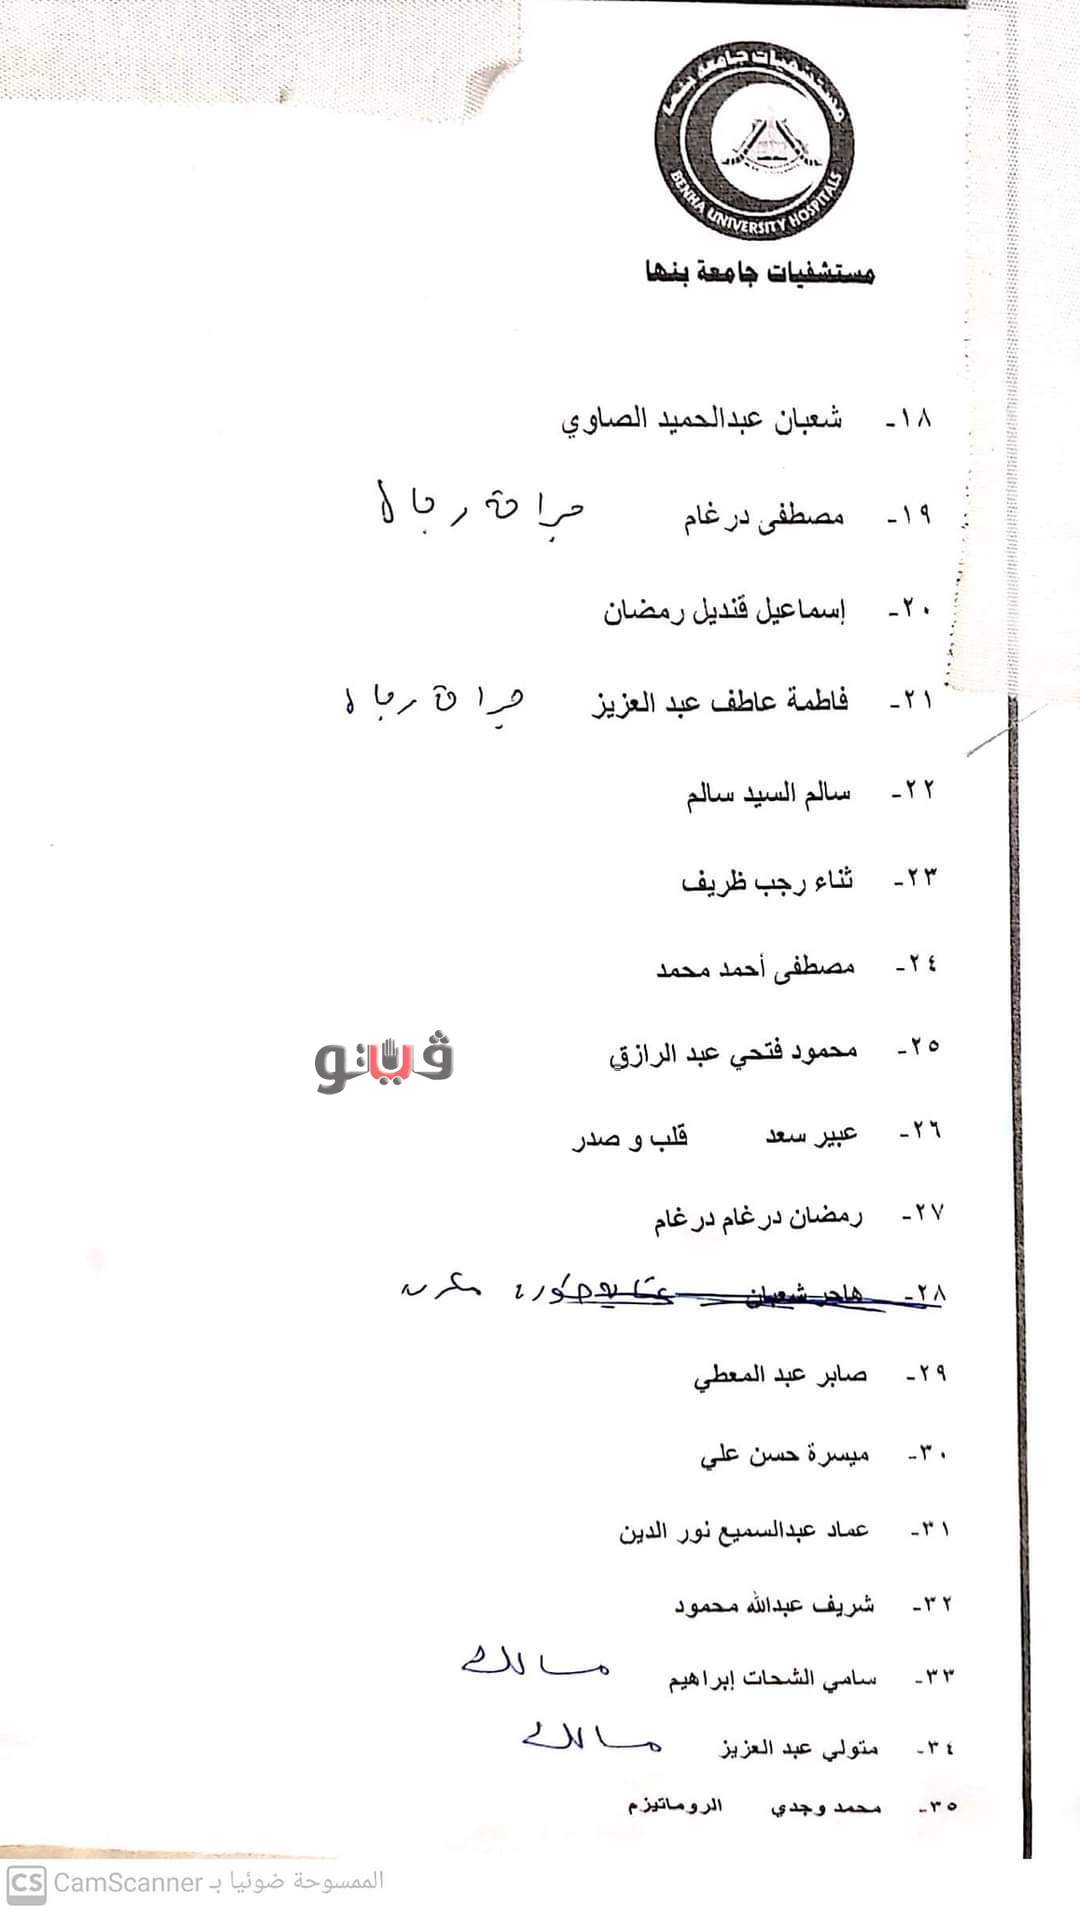 مستشفيات جامعة بنها
BENHA UNIVERSITY HOSPITALS
مستشفيات جامعة بنها
١٨- شعبان عبدالحميد الصاوي
١٩- مصطفى درغام جراحة رجال
٢٠- إسماعيل قنديل رمضان
٢١- فاطمة عاطف عبد العزيز جراحة رجال
٢٢- سالم السيد سالم
٢٣- ثناء رجب ظريف
٢٤- مصطفى أحمد محمد
٢٥- محمود فتحي عبد الرازق
ڤيتو
٢٦- عبير سعد قلب و صدر
٢٧- رمضان درغام درغام
٢٨- هاجر شعبان
٢٩- صابر عبد المعطي
٣٠- ميسرة حسن علي
٣١- عماد عبدالسميع نور الدين
٣٢- شريف عبدالله محمود
٣٣- سامي الشحات إبراهيم مسالك
٣٤- متولي عبد العزيز مسالك
٣٥- محمد وجدي الروماتيزم
CS CamScanner الممسوحة ضوئيا بـ